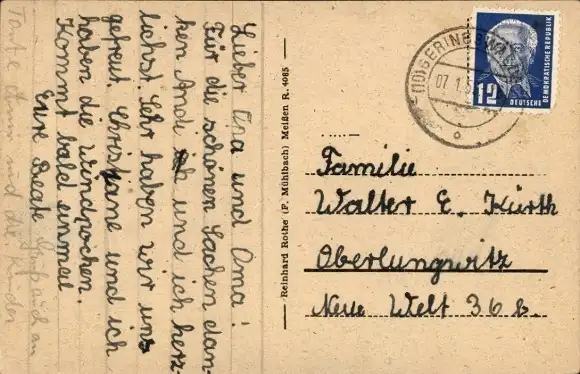 Lieber Opa und Oma!
Für die schönen Sachen dan-
ken Andi und ich herz-
lichst. Sehr haben wir uns
gefreut. Christiane und ich
haben die Windpocken.
Kommt bald einmal
Eure Beate
Reinhard Rothe (P. Mühlbach) Meißen R. 4085
(10) GERINGSWALDE
07.1.5
12
DEUTSCHE
DEMOKRATISCHE REPUBLIK
Familie
Walter E. Kürth
Oberlungwitz
Neue Welt 36 b.